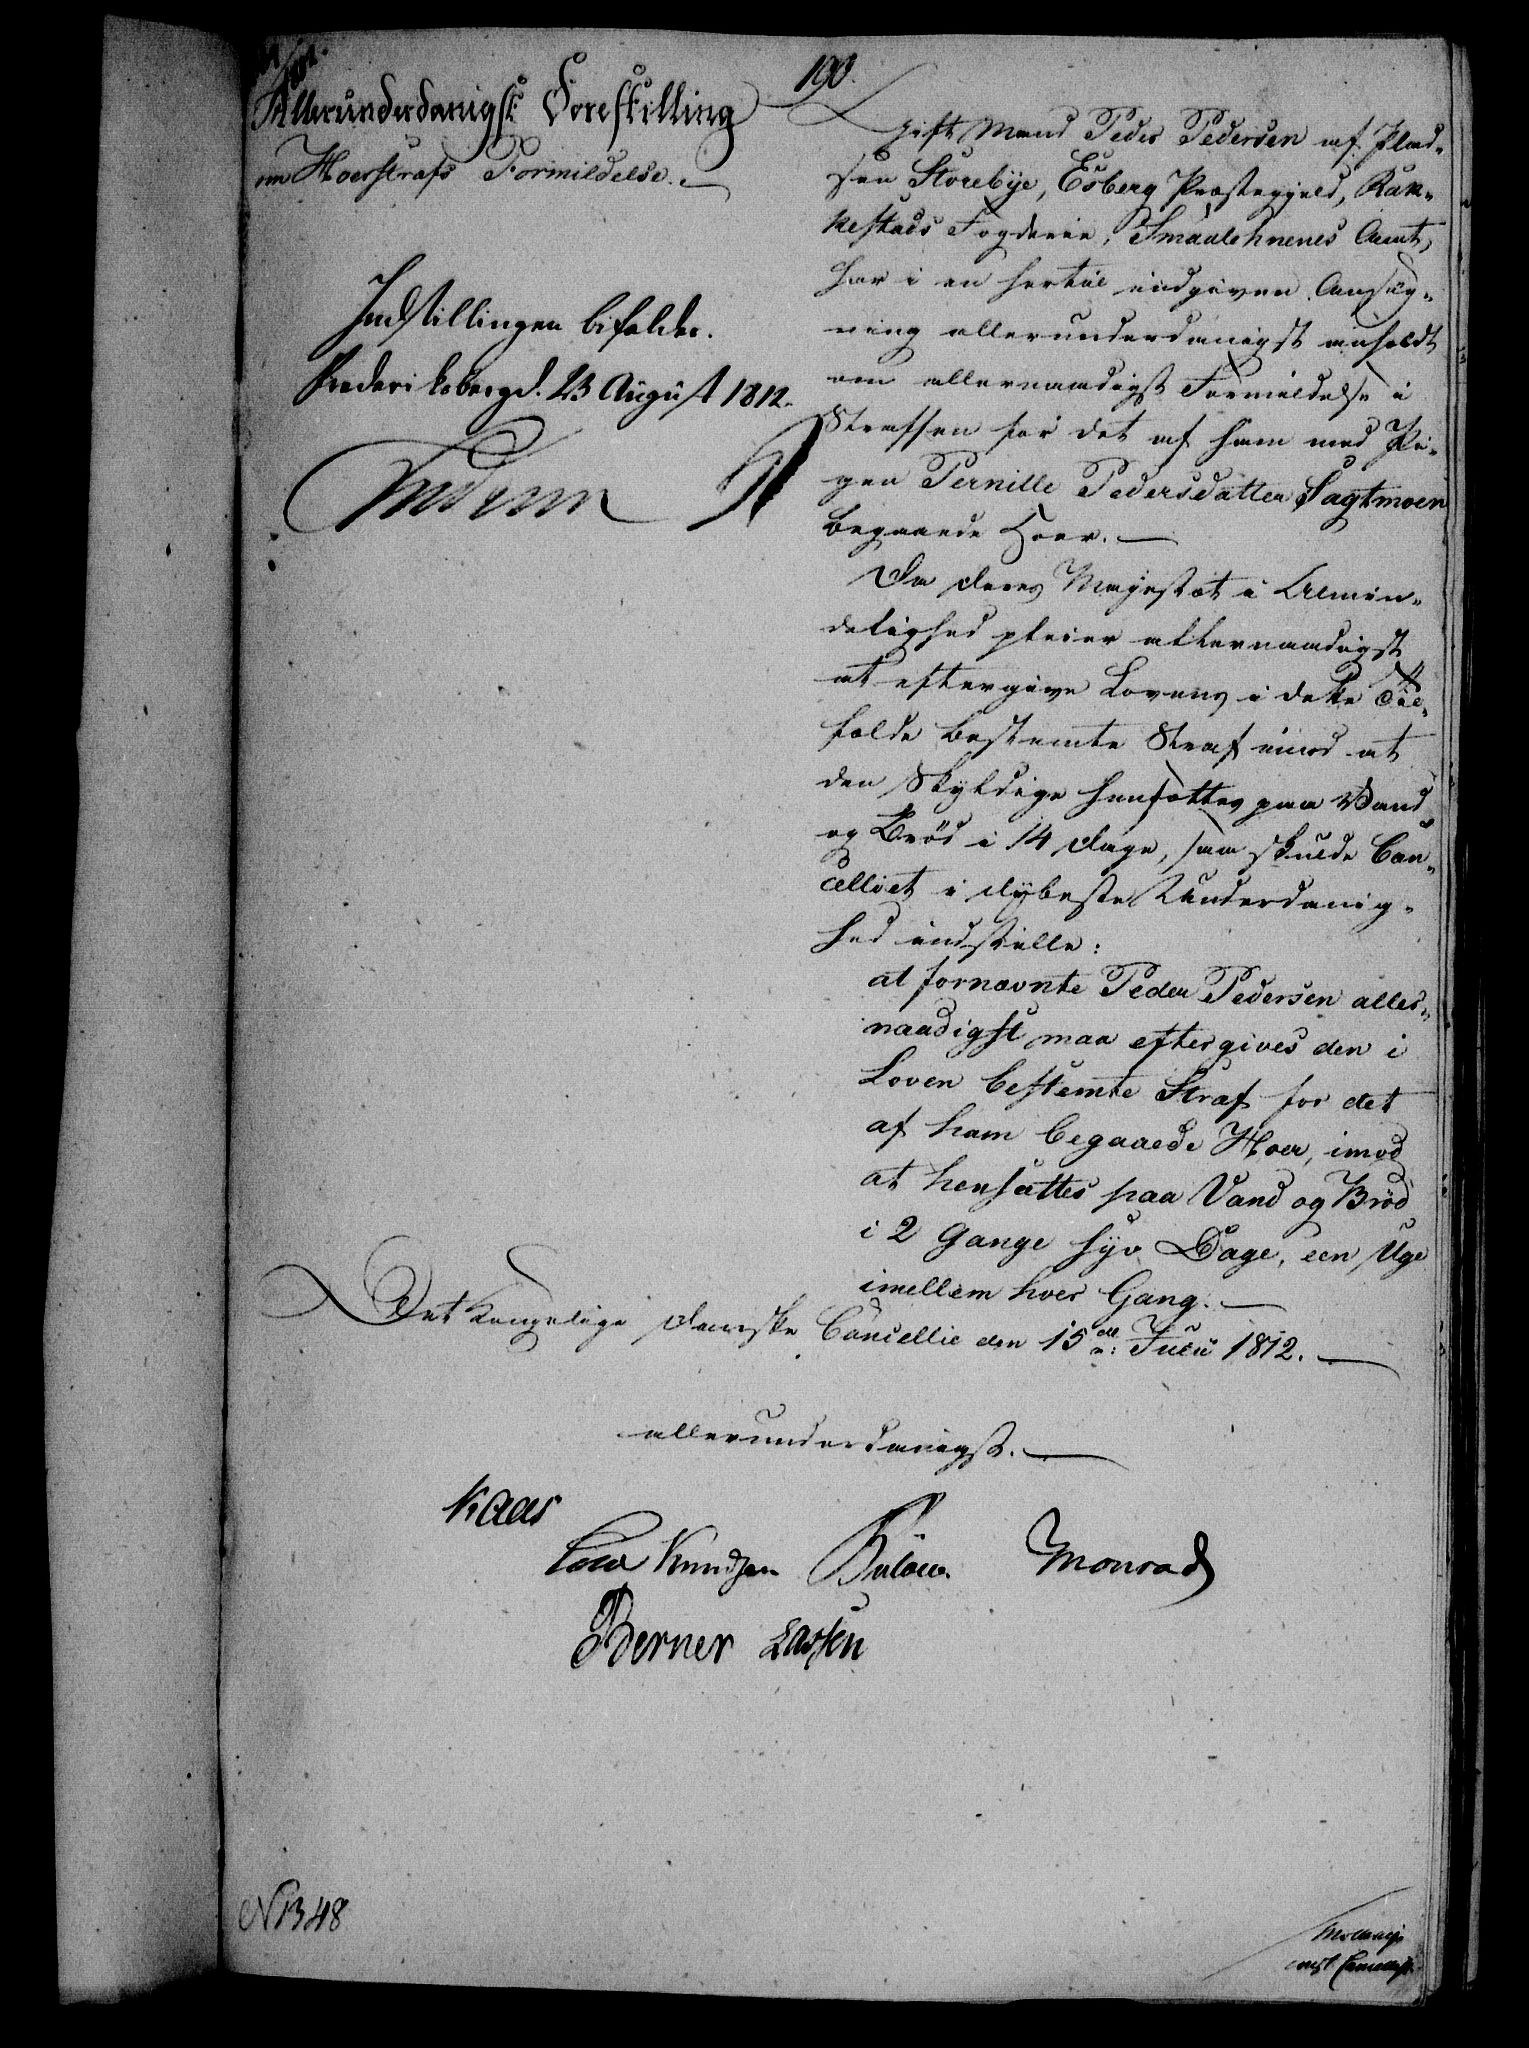 190.
Allerunderdanigst Forestilling
om Hoerstrafs Formildelse.
Indstillingen bifaldes.
Frederiksberg d. 23 August 1812.
Frederik R
Gift Mand Peder Pedersen af Plad-
sen Storebye, Esberg Præstegjeld, Rak-
kestads Fogderie, Smaalehnenes Amt,
har i en hertil indgiven Ansøg-
ning allerunderdanigst anholdt
om allernaadigst Formildelse i
Straffen for det af ham med Pi-
gen Pernille Pedersdatter Sagtmoen
begaaede Hoer.
Da Deres Majestæt i Almin-
delighed pleier allernaadigst
at eftergive Lovens i dette Til-
fælde bestemte Straf imod at
den Skyldige hensættes paa Vand
og Brød i 14 Dage, saa skulde Can-
celliet i dybeste Underdanig-
hed indstille:
at fornævnte Peder Pedersen aller-
naadigst maa eftergives den i
Loven bestemte Straf for det
af ham begaaede Hoer, imod
at hensættes paa Vand og Brød
i 2 Gange syv Dage, een Uge
imellem hver Gang.
Det Kongelige Danske Cancellie den 15de Julii 1812.
allerunderdanigst.
Kaas
Cold Knudsen Bülow. Monrad
Berner Lassen
N 1348